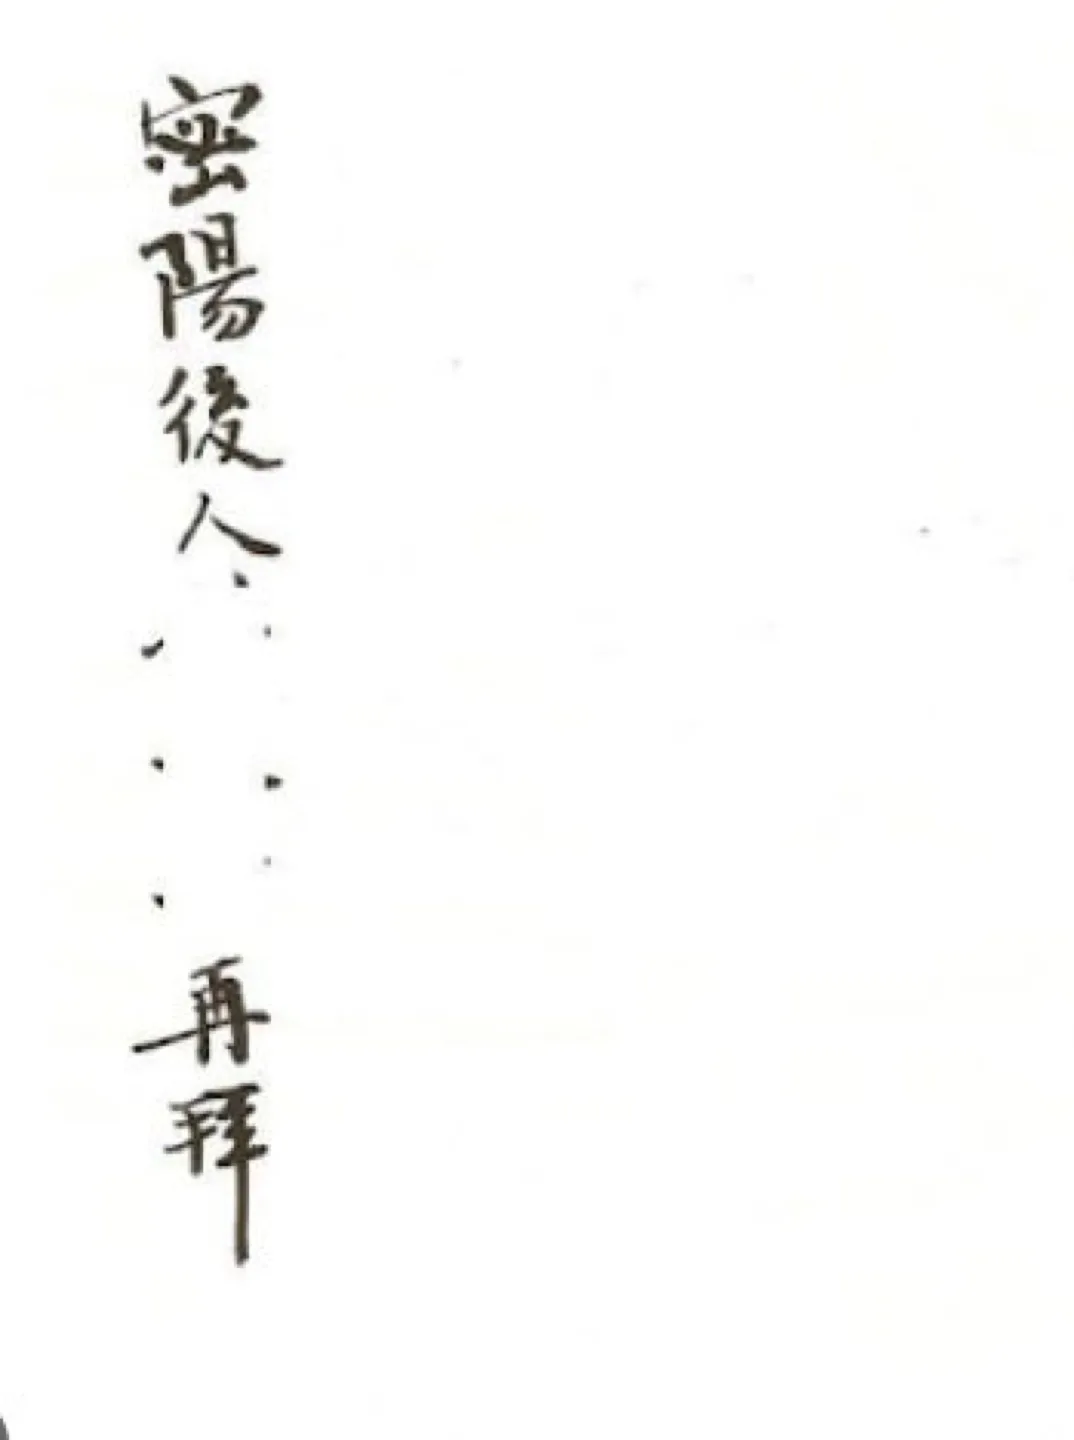 密陽後人
再拜